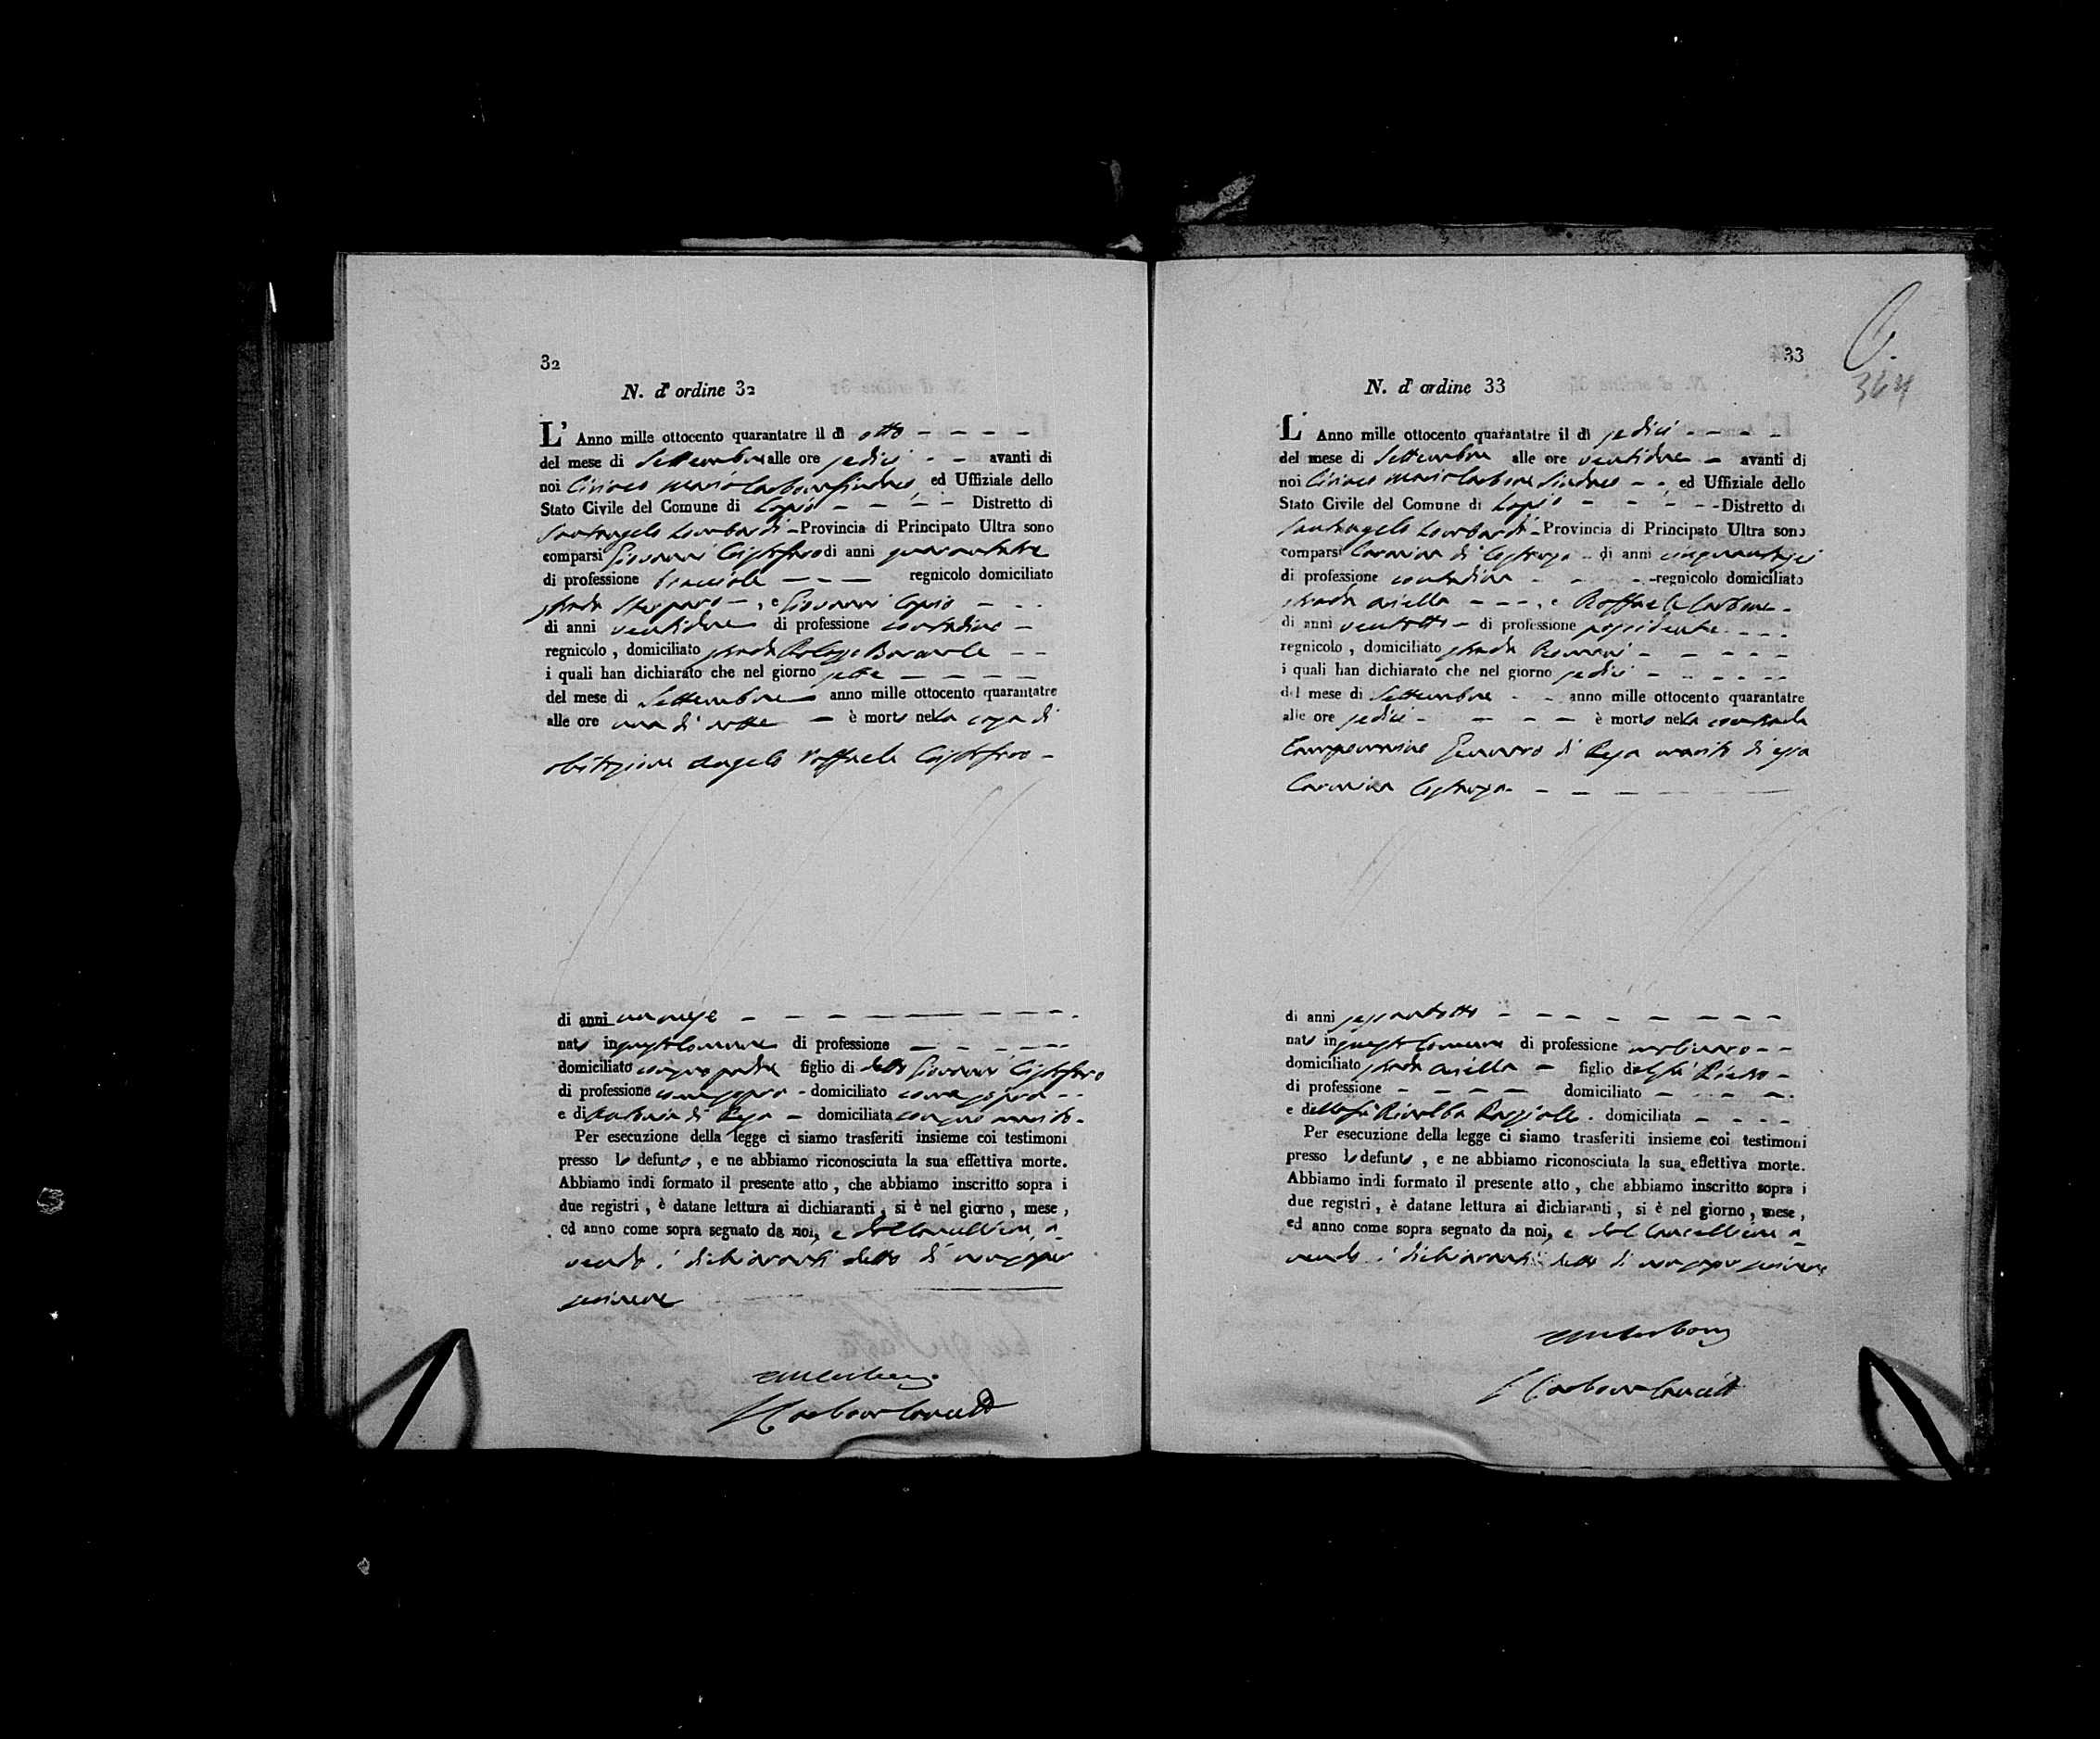 32
N. d'ordine 32
L' Anno mille ottocento quarantatre il dì otto
del mese di Settembre alle ore sedici avanti di
noi Ciriaco Maria Carbone Sindaco, ed Uffiziale dello
Stato Civile del Comune di Lapio Distretto di
Santangelo Lombardi Provincia di Principato Ultra sono
comparsi Giovanni Cristofaro di anni quarantatre
di professione bracciale regnicolo domiciliato
strada, e Giovanni
di anni ventidue di professione contadino
regnicolo, domiciliato strada
i quali han dichiarato che nel giorno sette
del mese di Settembre anno mille ottocento quarantatre
alle ore una di notte è morto nella casa di
abitazione Angelo Raffaele Cristofaro
di anni un mese
nato in questo Comune di professione
domiciliato con suo padre figlio di detto Giovanni Cristofaro
di professione come sopra domiciliato come sopra
e di Antonia di Resa domiciliata con suo marito
Per esecuzione della legge ci siamo trasferiti insieme coi testimoni
presso lo defunto, e ne abbiamo riconosciuta la sua effettiva morte.
Abbiamo indi formato il presente atto, che abbiamo inscritto sopra i
due registri, è datane lettura ai dichiaranti, si è nel giorno, mese,
ed anno come sopra segnato da noi, e dal Cancelliere, a-
vendo i dichiaranti detto di non saper
scrivere
33
364
N. d'ordine 33
L' Anno mille ottocento quarantatre il dì sedici
del mese di Settembre alle ore ventidue avanti di
noi Ciriaco Maria Carbone Sindaco, ed Uffiziale dello
Stato Civile del Comune di Lapio Distretto di
Santangelo Lombardi Provincia di Principato Ultra sono
comparsi Carmina di di anni cinquantasei
di professione contadina regnicolo domiciliato
strada Ariella, e Raffaele Carbone
di anni ventotto di professione possidente
regnicolo, domiciliato strada Romani
i quali han dichiarato che nel giorno sedici
del mese di Settembre anno mille ottocento quarantatre
alle ore sedici è morto nella contrada
Gennaro di Resa marito di essa
Carmina
di anni sessantotto
nato in questo Comune di professione molinaro
domiciliato strada Ariella figlio del fu Pietro
di professione domiciliato
e della fu domiciliata
Per esecuzione della legge ci siamo trasferiti insieme coi testimoni
presso lo defunto, e ne abbiamo riconosciuta la sua effettiva morte.
Abbiamo indi formato il presente atto, che abbiamo inscritto sopra i
due registri, è datane lettura ai dichiaranti, si è nel giorno, mese,
ed anno come sopra segnato da noi, e dal Cancelliere a-
vendo i dichiaranti detto di non saper scrivere